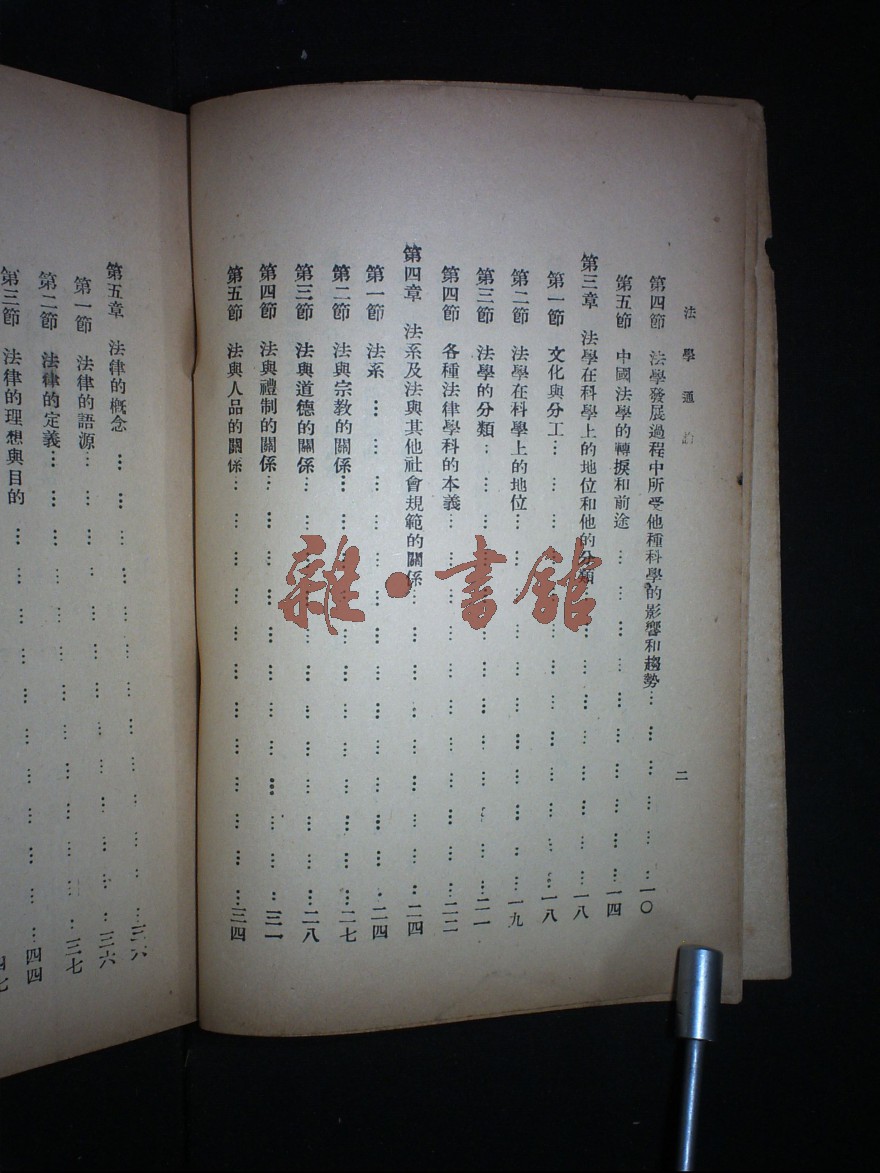 法學通
二
第四節 法學發展過程中所受他種科學的影響和趨勢…………………一〇
第五節 中國法學的轉捩和前途…………………………一四
第三章 法學在科學上的地位和他的分類…………………………一八
第一節 文化與分工…………………………一八
第二節 法學在科學上的地位…………………………一九
第三節 法學的分類…………………………二一
第四節 各種法律學科的本義…………………………二二
第四章 法系及法與其他社會規範的關係…………………………二四
第一節 法系…………………………二四
第二節 法與宗教的關係…………………………二七
第三節 法與道德的關係…………………………二八
第四節 法與禮制的關係…………………………三一
第五節 法與人品的關係…………………………三四
第五章 法律的概念…………………………三六
第一節 法律的語源…………………………三六
第二節 法律的定義…………………………三七
第三節 法律的理想與目的…………………………四四
雜·書館